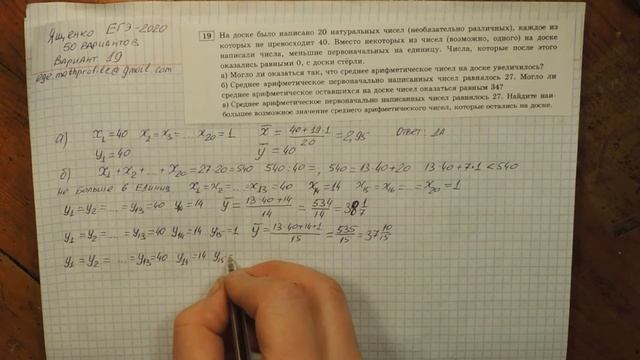 Ященко ЕГЭ-2020
50 вариантов
Вариант 19
ege.mathprofile@gmail.com
19 На доске было написано 20 натуральных чисел (необязательно различных), каждое из
которых не превосходит 40. Вместо некоторых из чисел (возможно, одного) на доске
написали числа, меньшие первоначальных на единицу. Числа, которые после этого
оказались равными 0, с доски стёрли.
а) Могло ли оказаться так, что среднее арифметическое чисел на доске увеличилось?
б) Среднее арифметическое первоначально написанных чисел равнялось 27. Могло ли
среднее арифметическое оставшихся на доске чисел оказаться равным 34?
в) Среднее арифметическое первоначально написанных чисел равнялось 27. Найдите наи-
большее возможное значение среднего арифметического чисел, которые остались на доске.
а) x₁=40 x₂=x₃=...x₂₀=1 x̄ = (40+19·1)/20 = 2,95 Ответ: ДА
y₁=40 ȳ=40
б) x₁+x₂+...+x₂₀=27·20=540 540:40=, 540=13·40+20 13·40+7·1<540
не больше 6 единиц x₁=x₂=...=x₁₃=40 x₁₄=14 x₁₅=x₁₆=...=x₂₀=1
y₁=y₂=...=y₁₃=40 y₁₄=14 ȳ = (13·40+14)/14 = 534/14 = 38 1/7
y₁=y₂=...=y₁₃=40 y₁₄=14 y₁₅=1 ȳ = (13·40+14+1)/15 = 535/15 = 37 10/15
y₁=y₂= ... =y₁₃=40 y₁₄=14 y₁₅